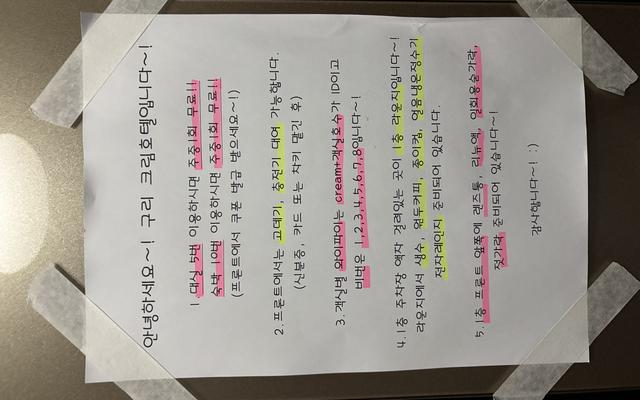 안녕하세요~! 구리 크림호텔입니다~!
1. 대실 5번 이용하시면 주중1회 무료!!
숙박 10번 이용하시면 주중1회 무료!!
(프론트에서 쿠폰 발급 받으세요~!)
2. 프론트에서는 고데기, 충전기 대여 가능합니다.
(신분증, 카드 또는 차키 맡긴 후)
3. 객실별 와이파이는 cream+객실호수가 ID이고
비번은 1,2,3,4,5,6,7,8입니다~!
4. 1층 주차장 액자 걸려있는 곳이 1층 라운지입니다~!
라운지에서 생수, 원두커피, 종이컵, 얼음내온정수기
전자레인지 준비되어 있습니다.
5. 1층 프론트 앞쪽에 렌즈통, 리뉴액, 일회용숟가락,
젓가락 준비되어 있습니다~!
감사합니다~! :)